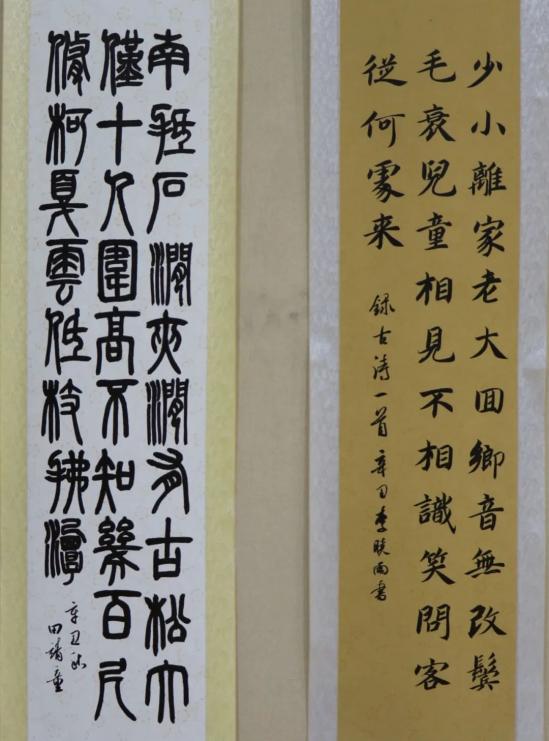 少小離家老大囬鄉音無改鬢
毛衰兒童相見不相識笑問客
從何處来
錄古诗一首 辛丑李晓雨書
南抵石澗夾澗有古松大
僅十人圍高不知幾百尺
修柯戛雲低枝拂潭
辛丑秋
田靖童